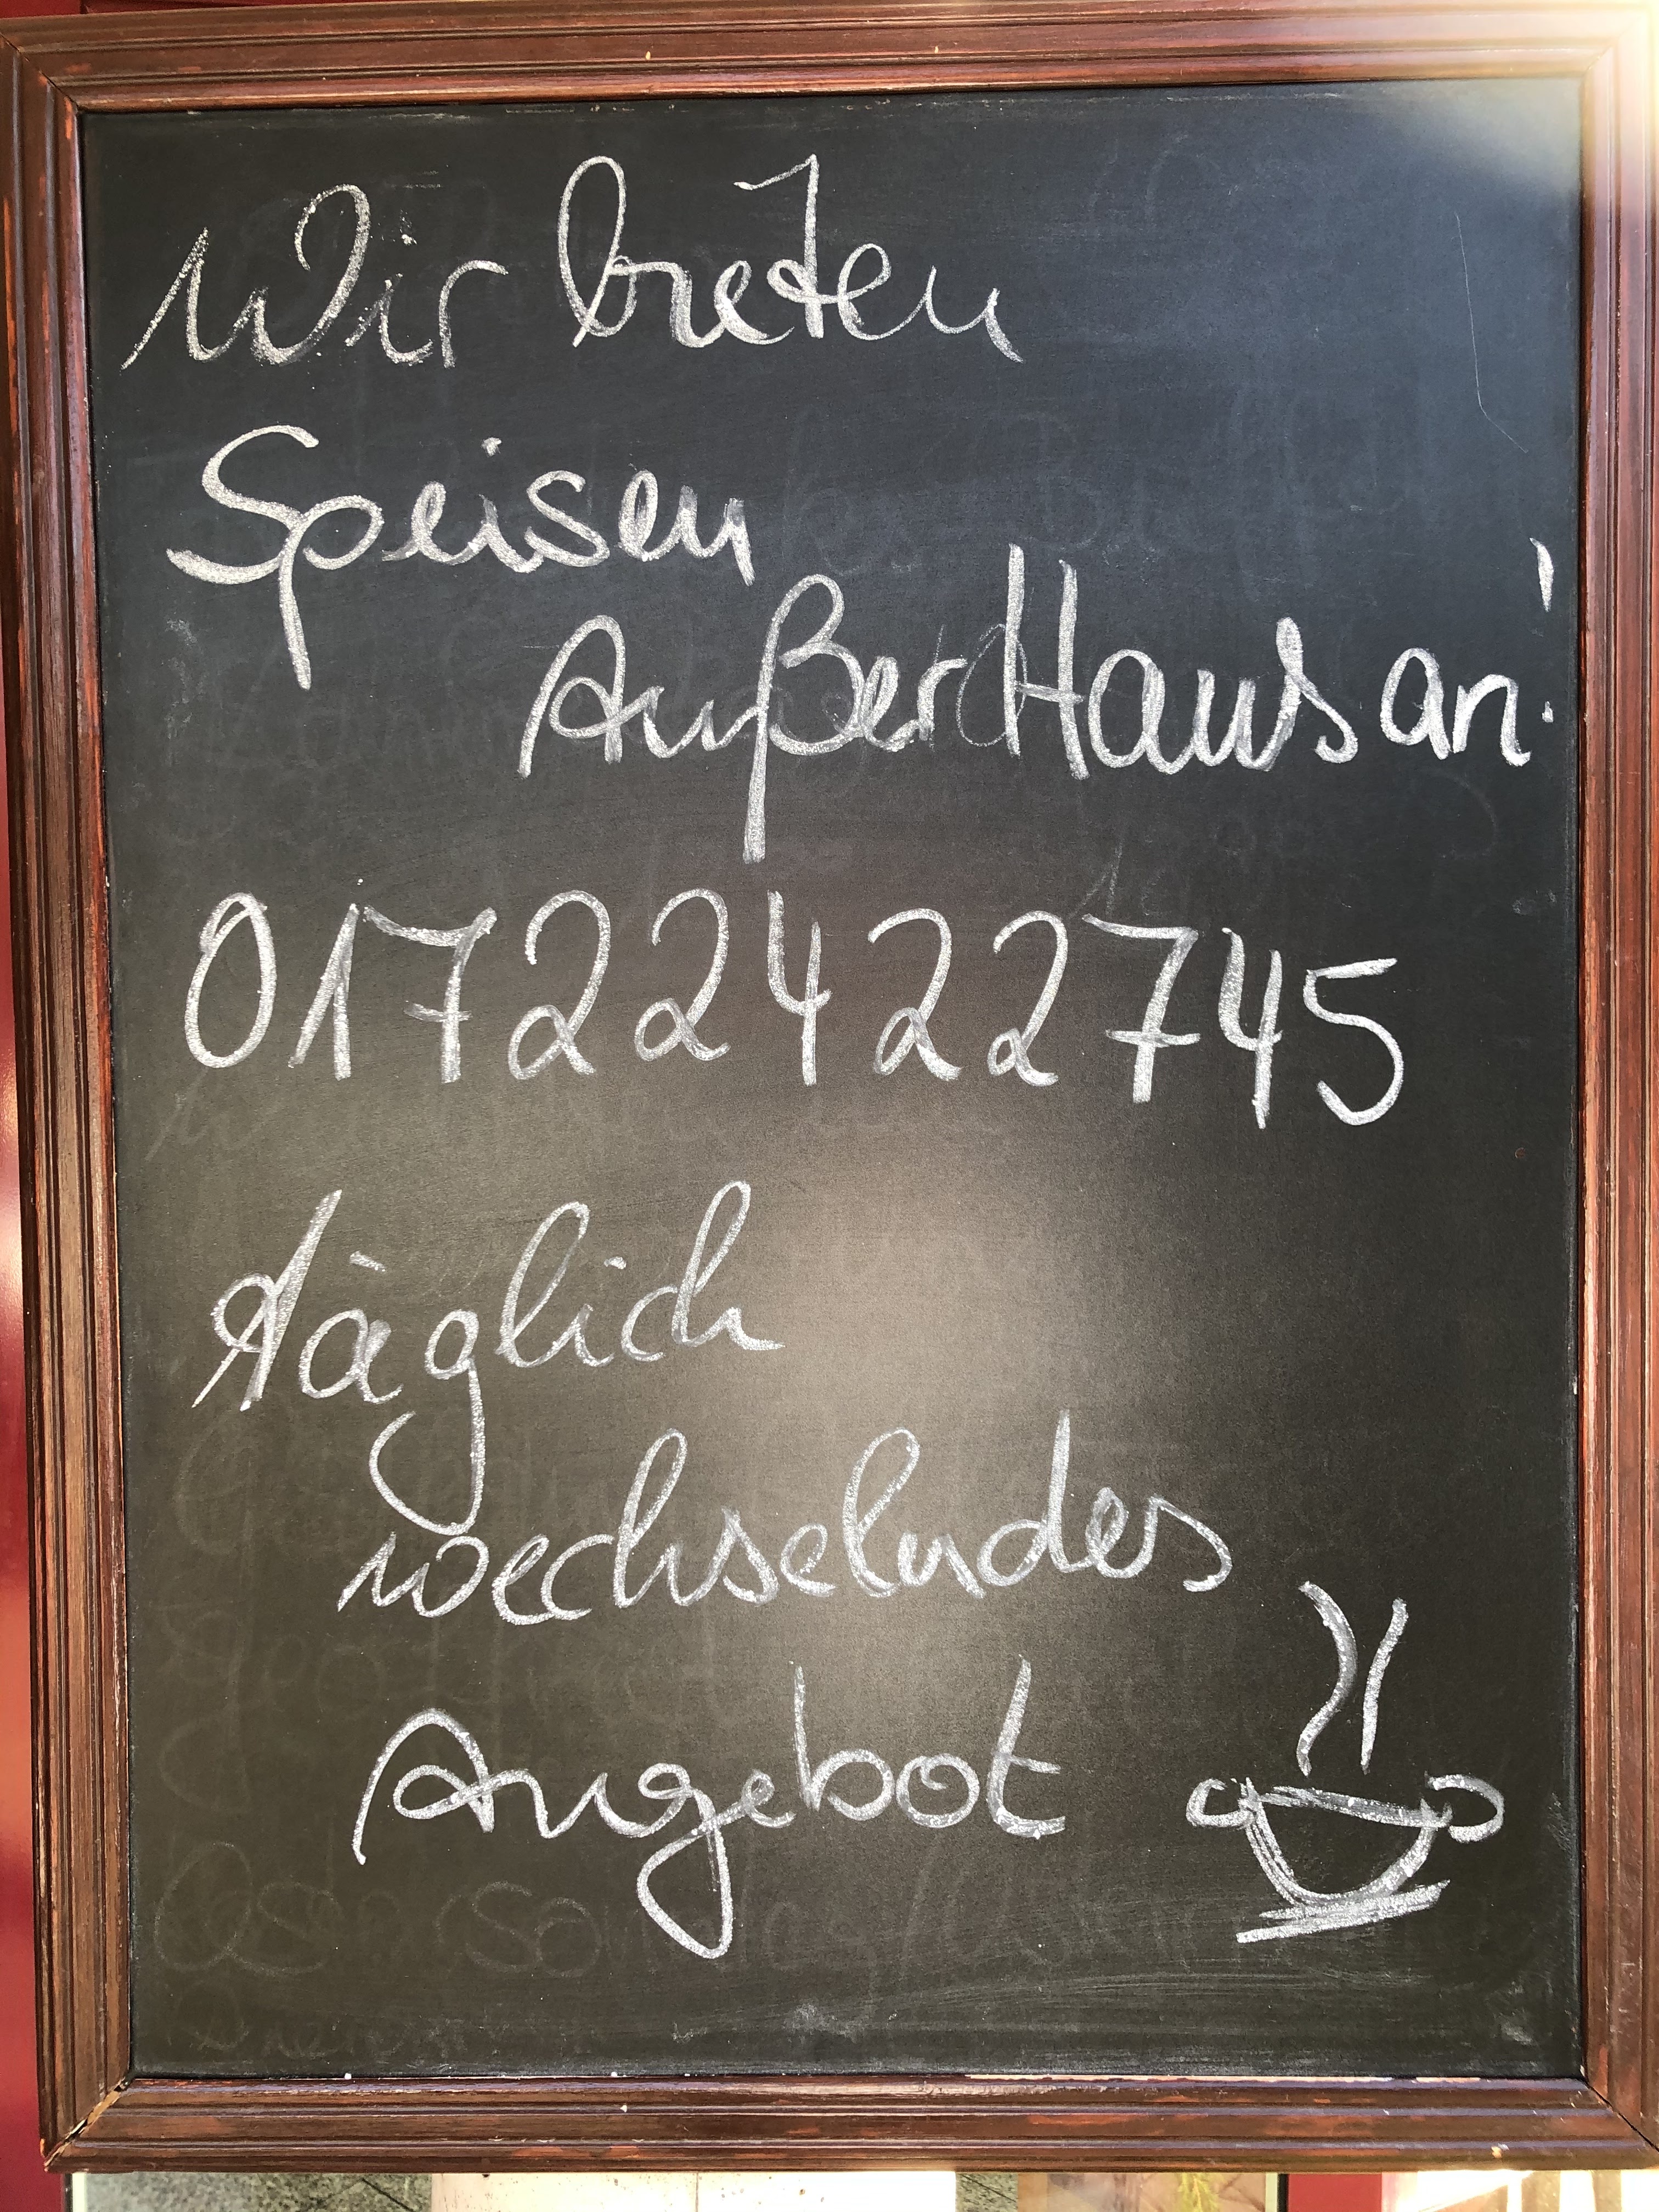 Wir bieten
Speisen
Außer Haus an!
01722422745
täglich
wechselndes
Angebot